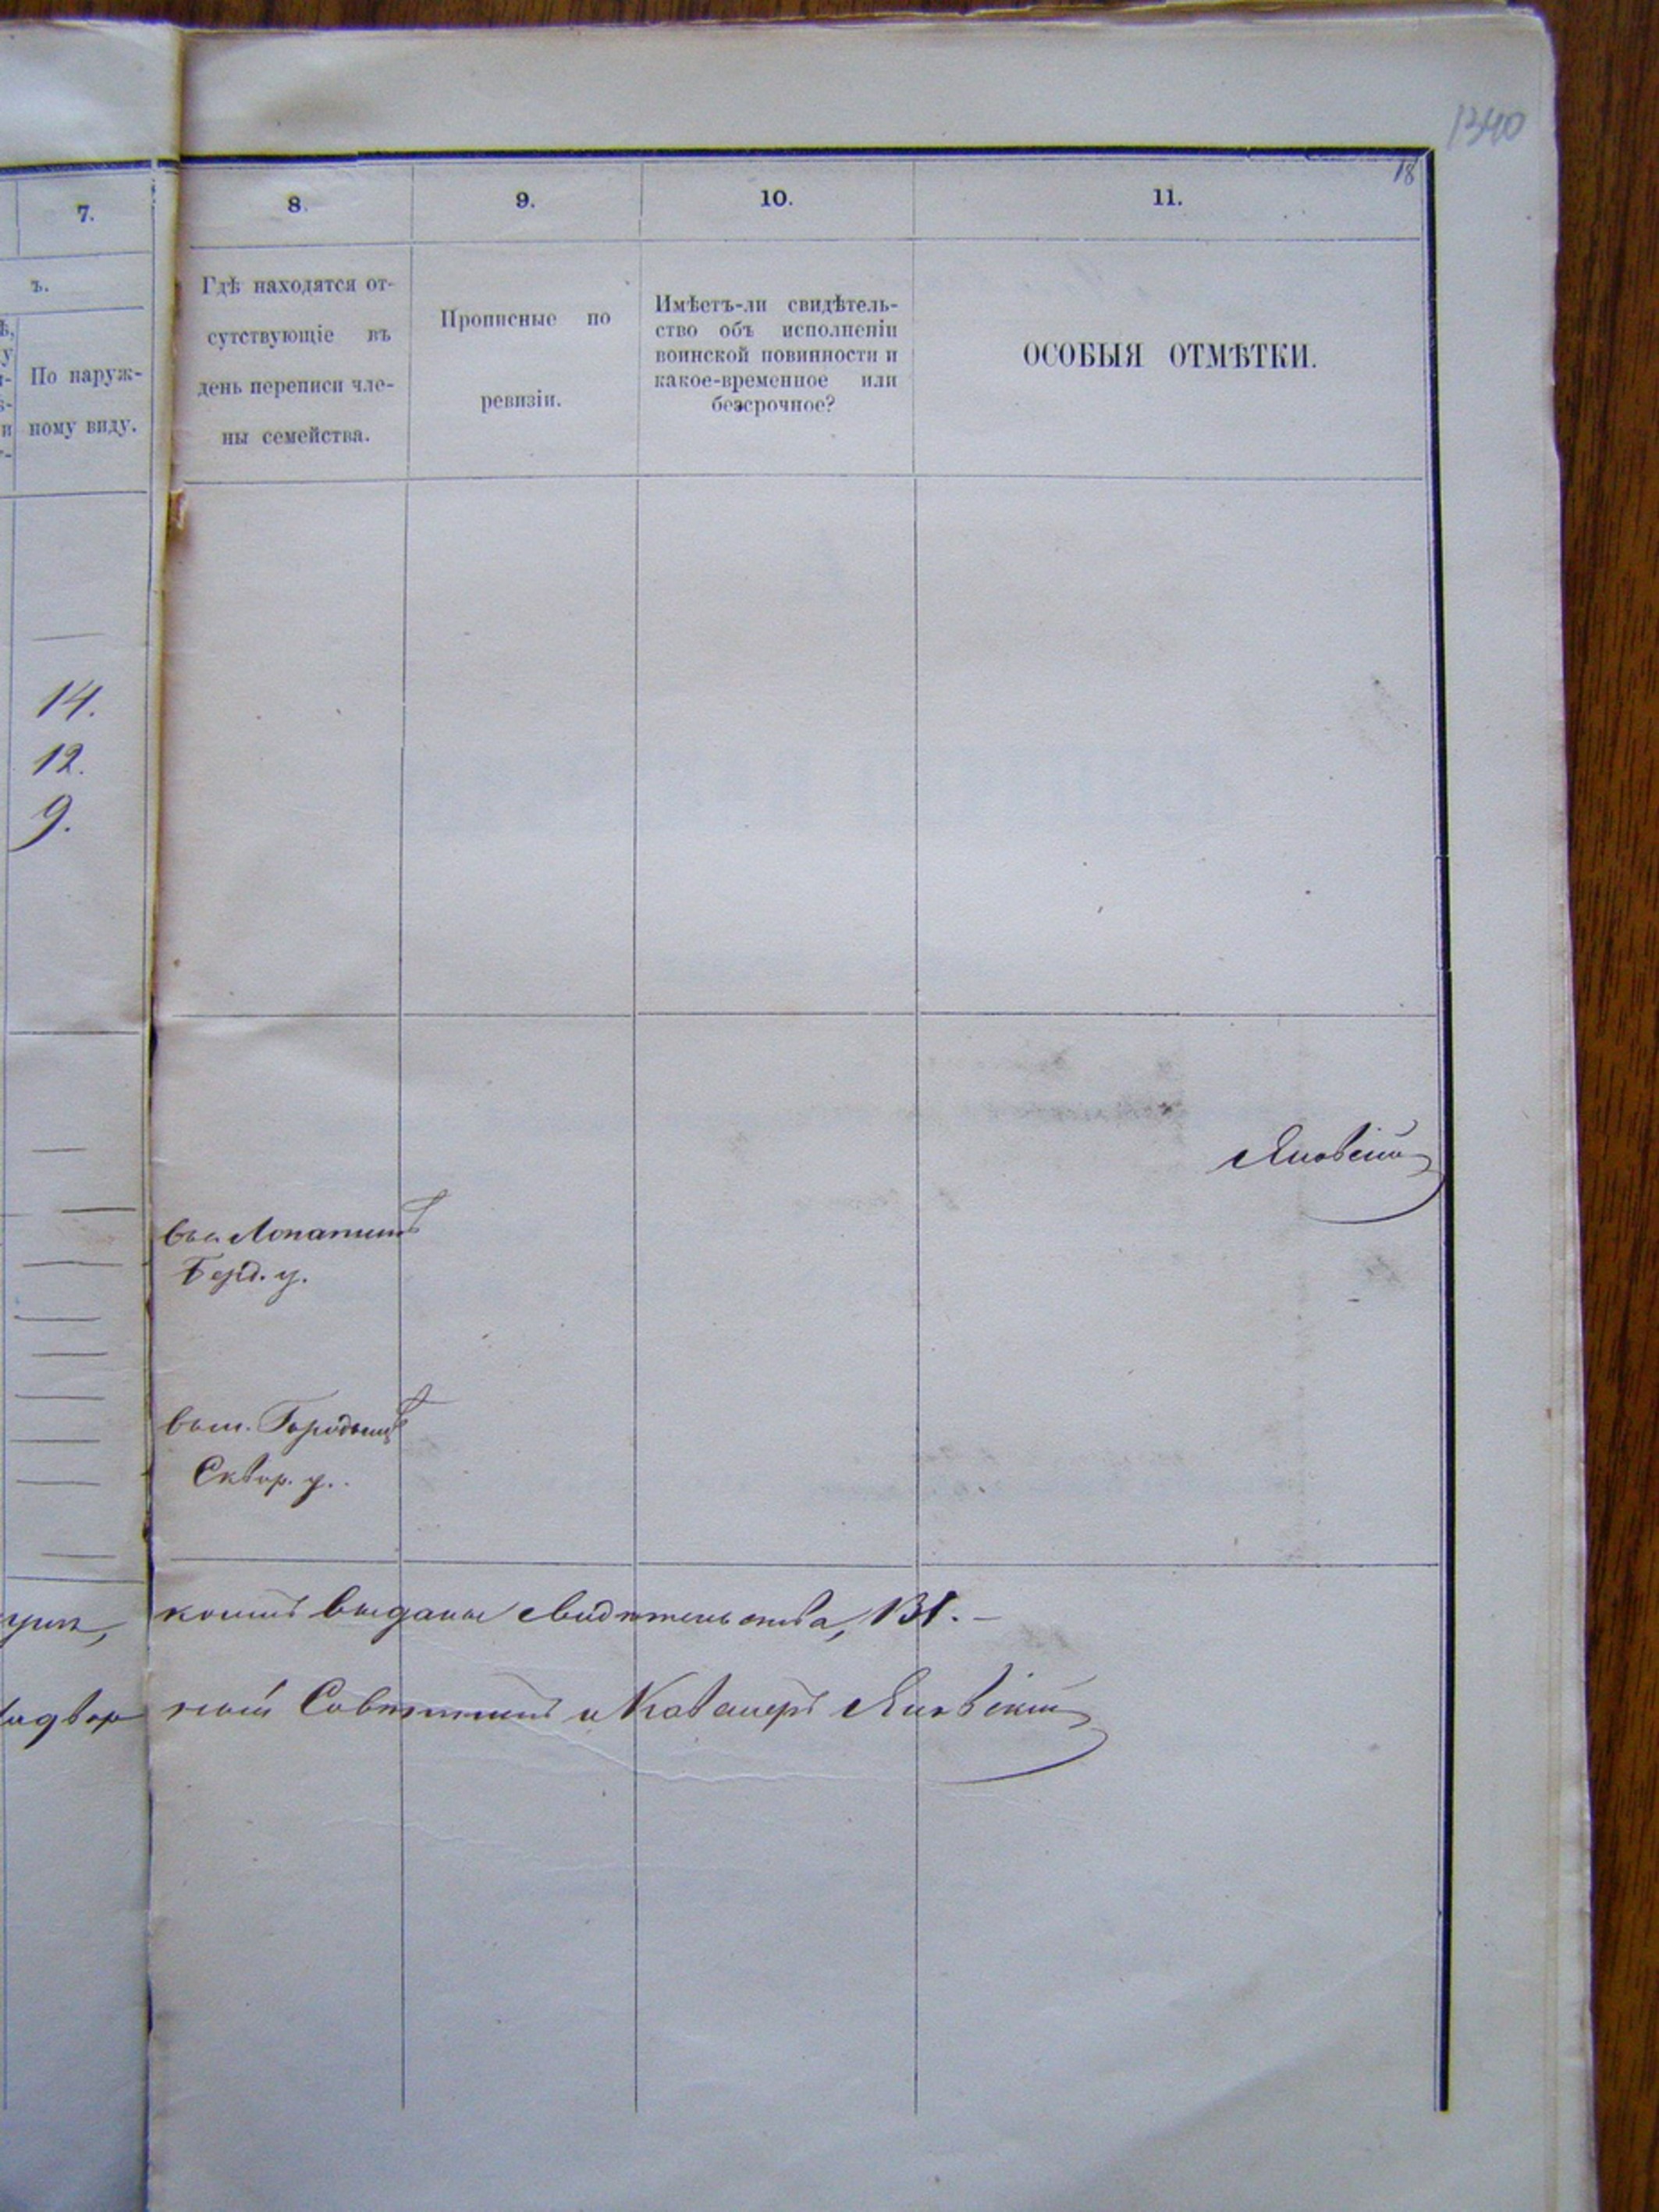 1340
18
7.
8.
9.
10.
11.
ъ.
По наруж-
ному виду.
Гдѣ находятся от-
сутствующіе въ
день переписи чле-
ны семейства.
Прописные по
ревизіи.
Имѣетъ-ли свидѣтель-
ство объ исполненіи
воинской повинности и
какое-временное или
безсрочное?
ОСОБЫЯ ОТМѢТКИ.
14.
12.
9.
Яновскій
Лопатинѣ
Берд. у.
Городищѣ
Сквир. у.
коимъ выданы свидѣтельства, 131. —
ный Совѣтникъ и Кавалеръ Яновскій